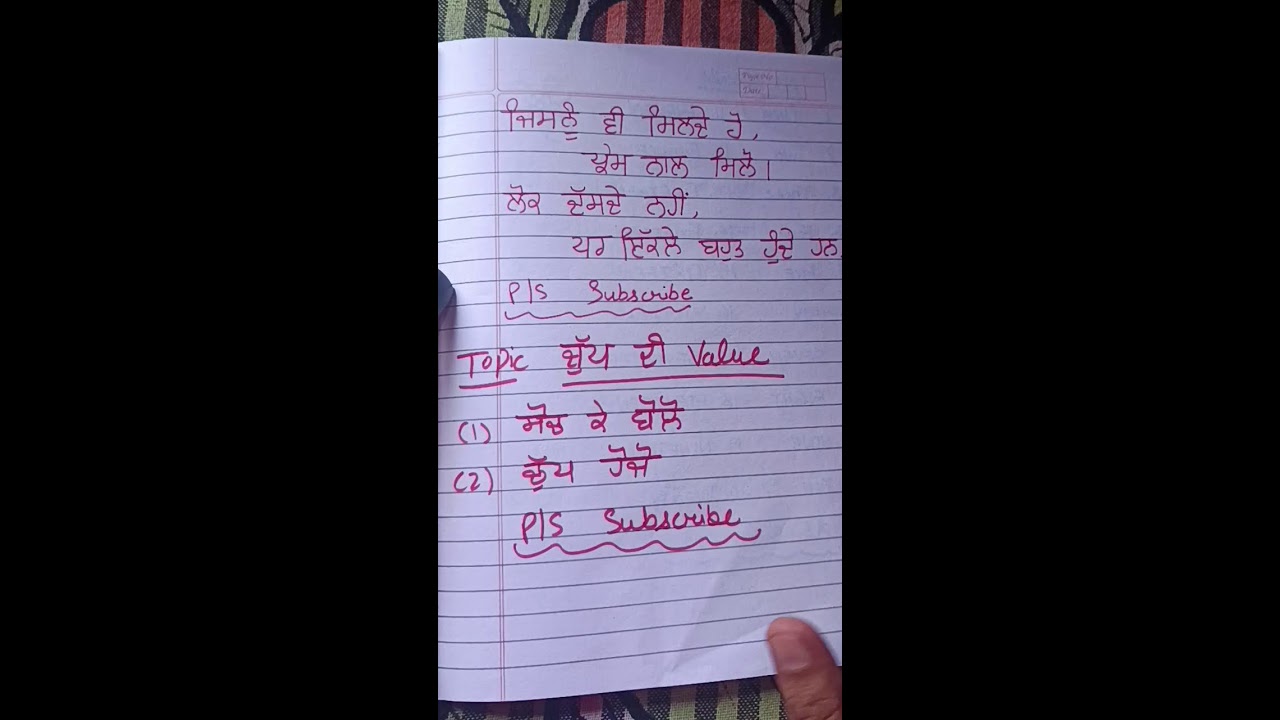 Page No.
Date
ਜਿਸਨੂੰ ਵੀ ਮਿਲਦੇ ਹੋ,
ਪ੍ਰੇਮ ਨਾਲ ਮਿਲੋ।
ਲੋਕ ਦੱਸਦੇ ਨਹੀਂ,
ਪਰ ਇਕੱਲੇ ਬਹੁਤ ਹੁੰਦੇ ਹਨ
P/S Subscribe
Topic ਚੁੱਪ ਦੀ Value
(1) ਸੋਚ ਕੇ ਬੋਲੋ
(2) ਚੁੱਪ ਹੋਜੋ
P/S Subscribe